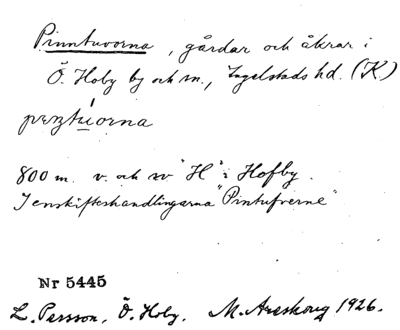 Pinntuvorna, gårdar och åkrar i
Ö. Hoby by och sn., Ingelstads hd. (K)
800 m. v. och sv "H" i Hofby.
I enskifteshandlingarna "Pintufverne"
Nr 5445
L. Persson, Ö. Hoby. M. Areskoug 1926.